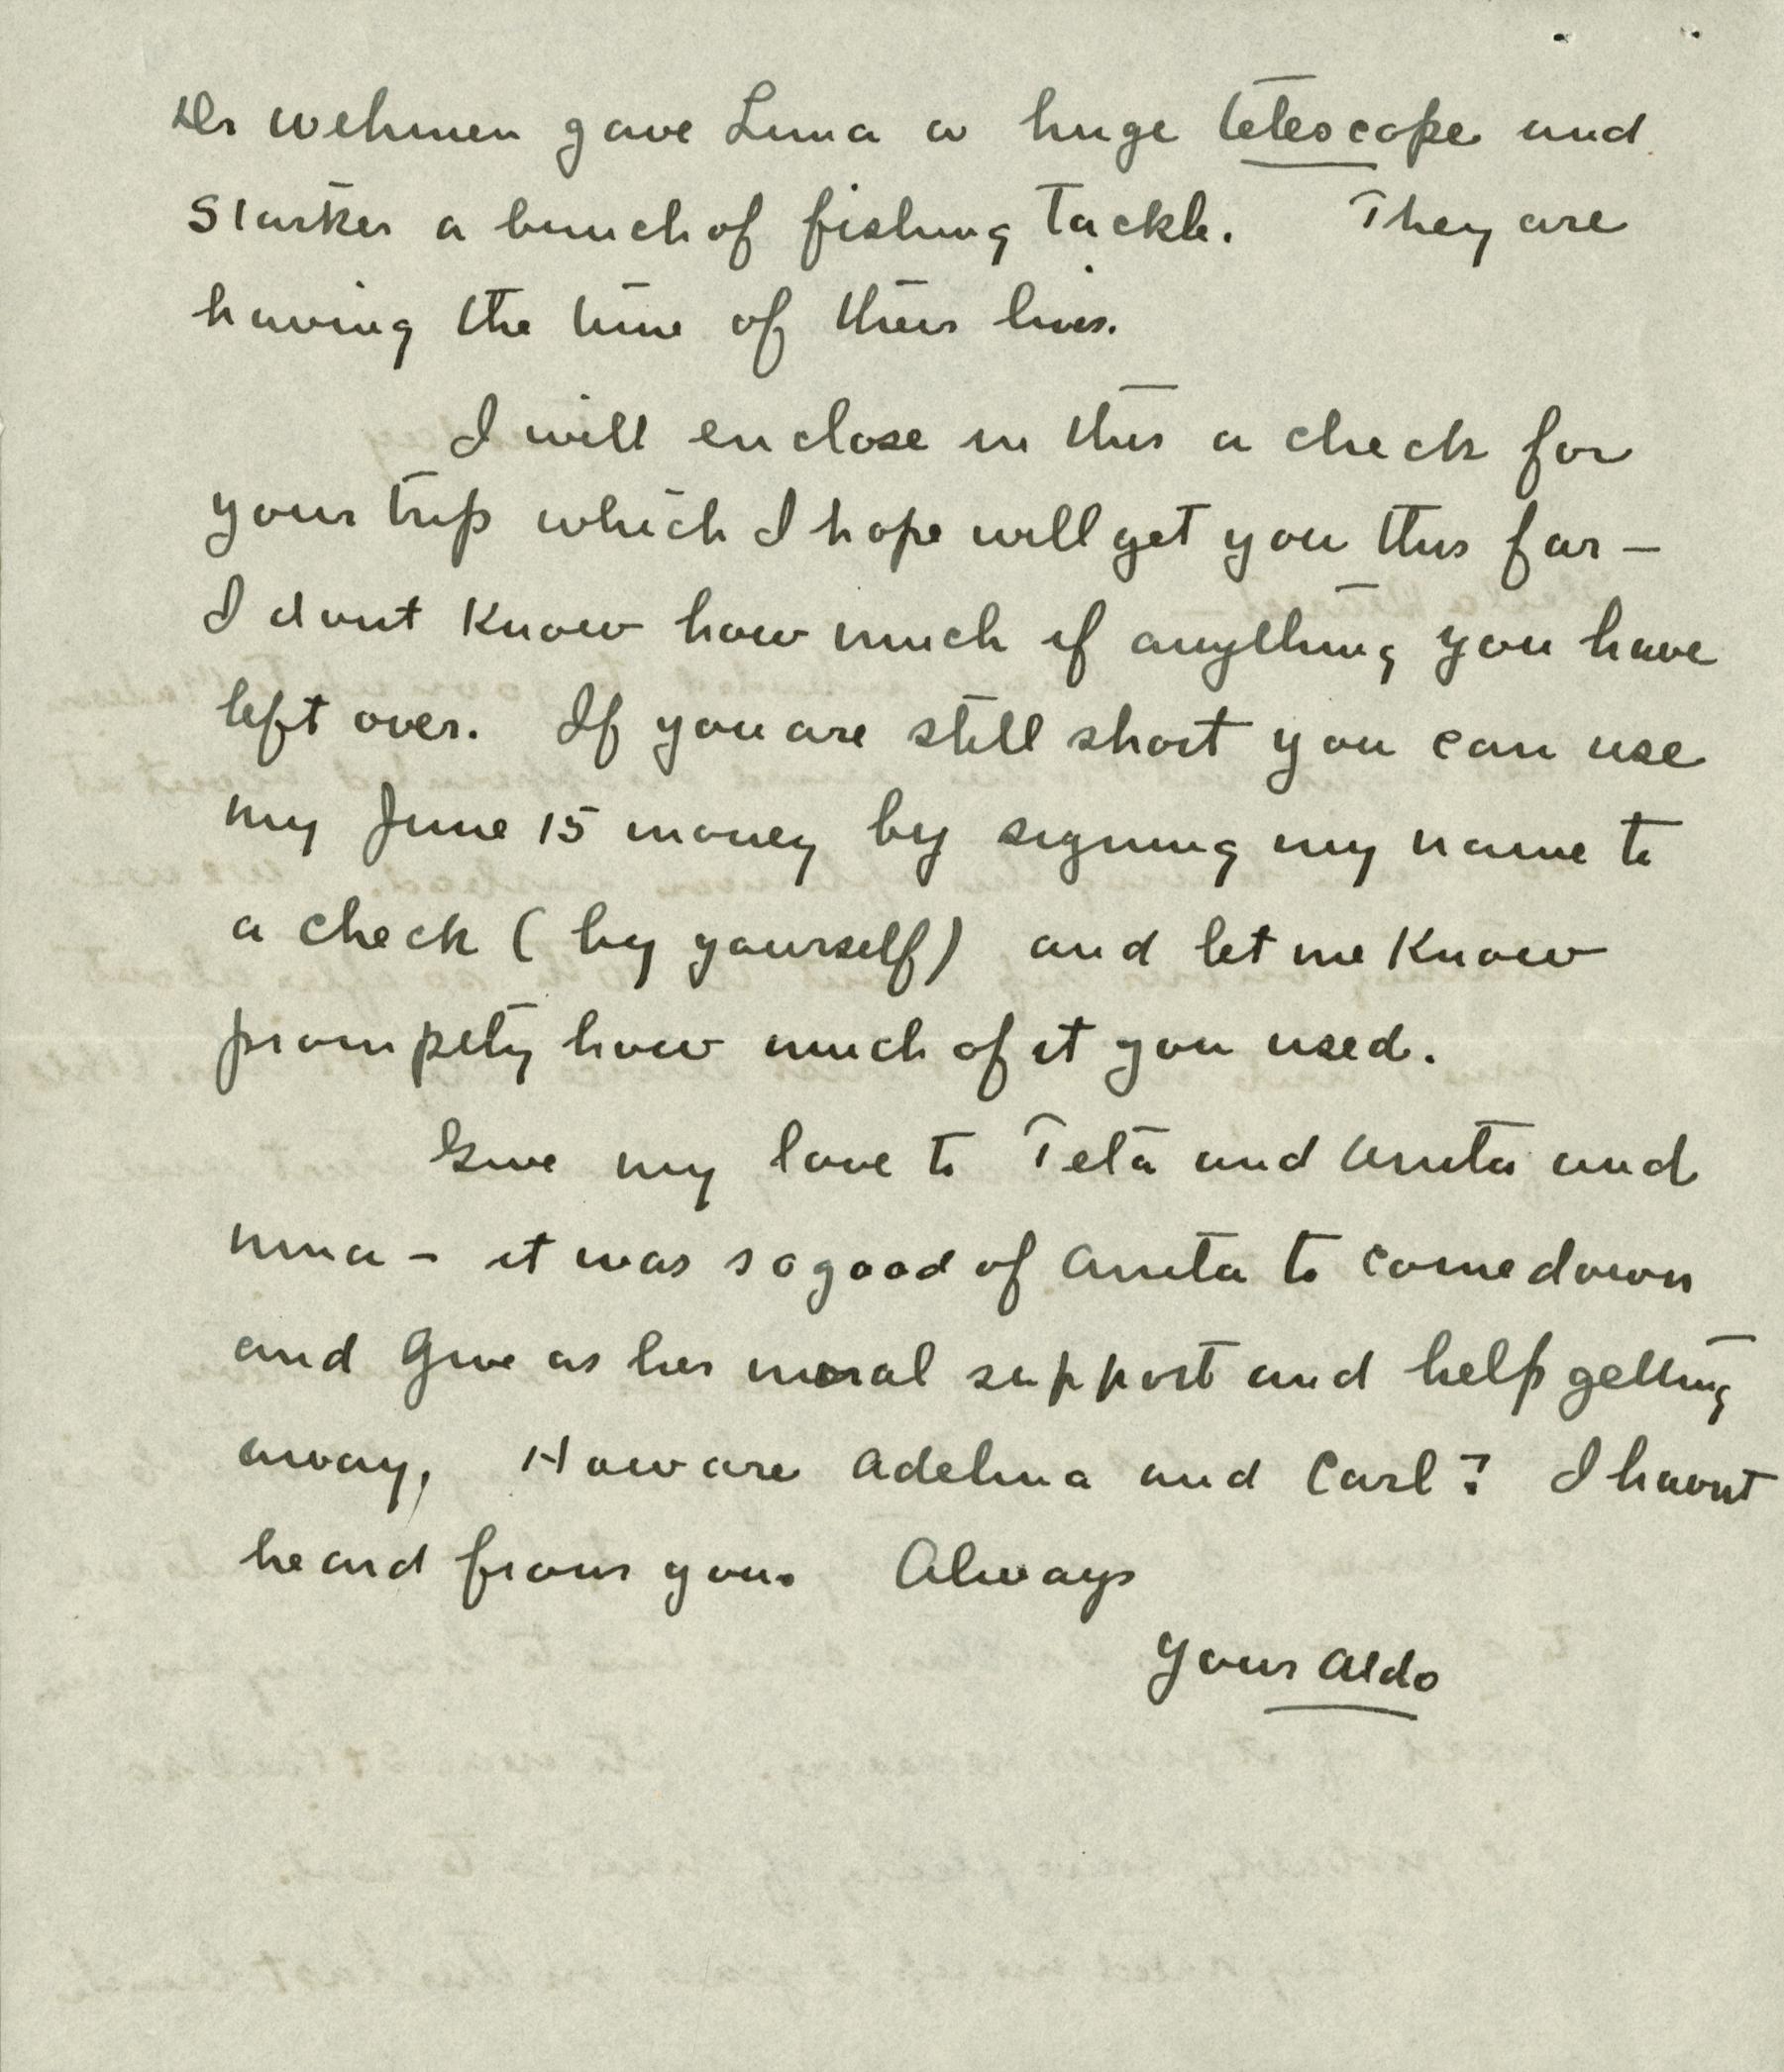 Dr Wehmen gave Luna a huge telescope and
Starker a bunch of fishing tackle. They are
having the time of their lives.
I will enclose in this a check for
your trip which I hope will get you this far -
I dont know how much if anything you have
left over. If you are still short you can use
my June 15 money by signing my name to
a check (by yourself) and let me know
promptly how much of it you used.
Give my love to Teta and Anita and
Nina - it was so good of Anita to come down
and give us her moral support and help getting
away. How are Adelina and Carl? I havnt
heard from you. Always
your Aldo